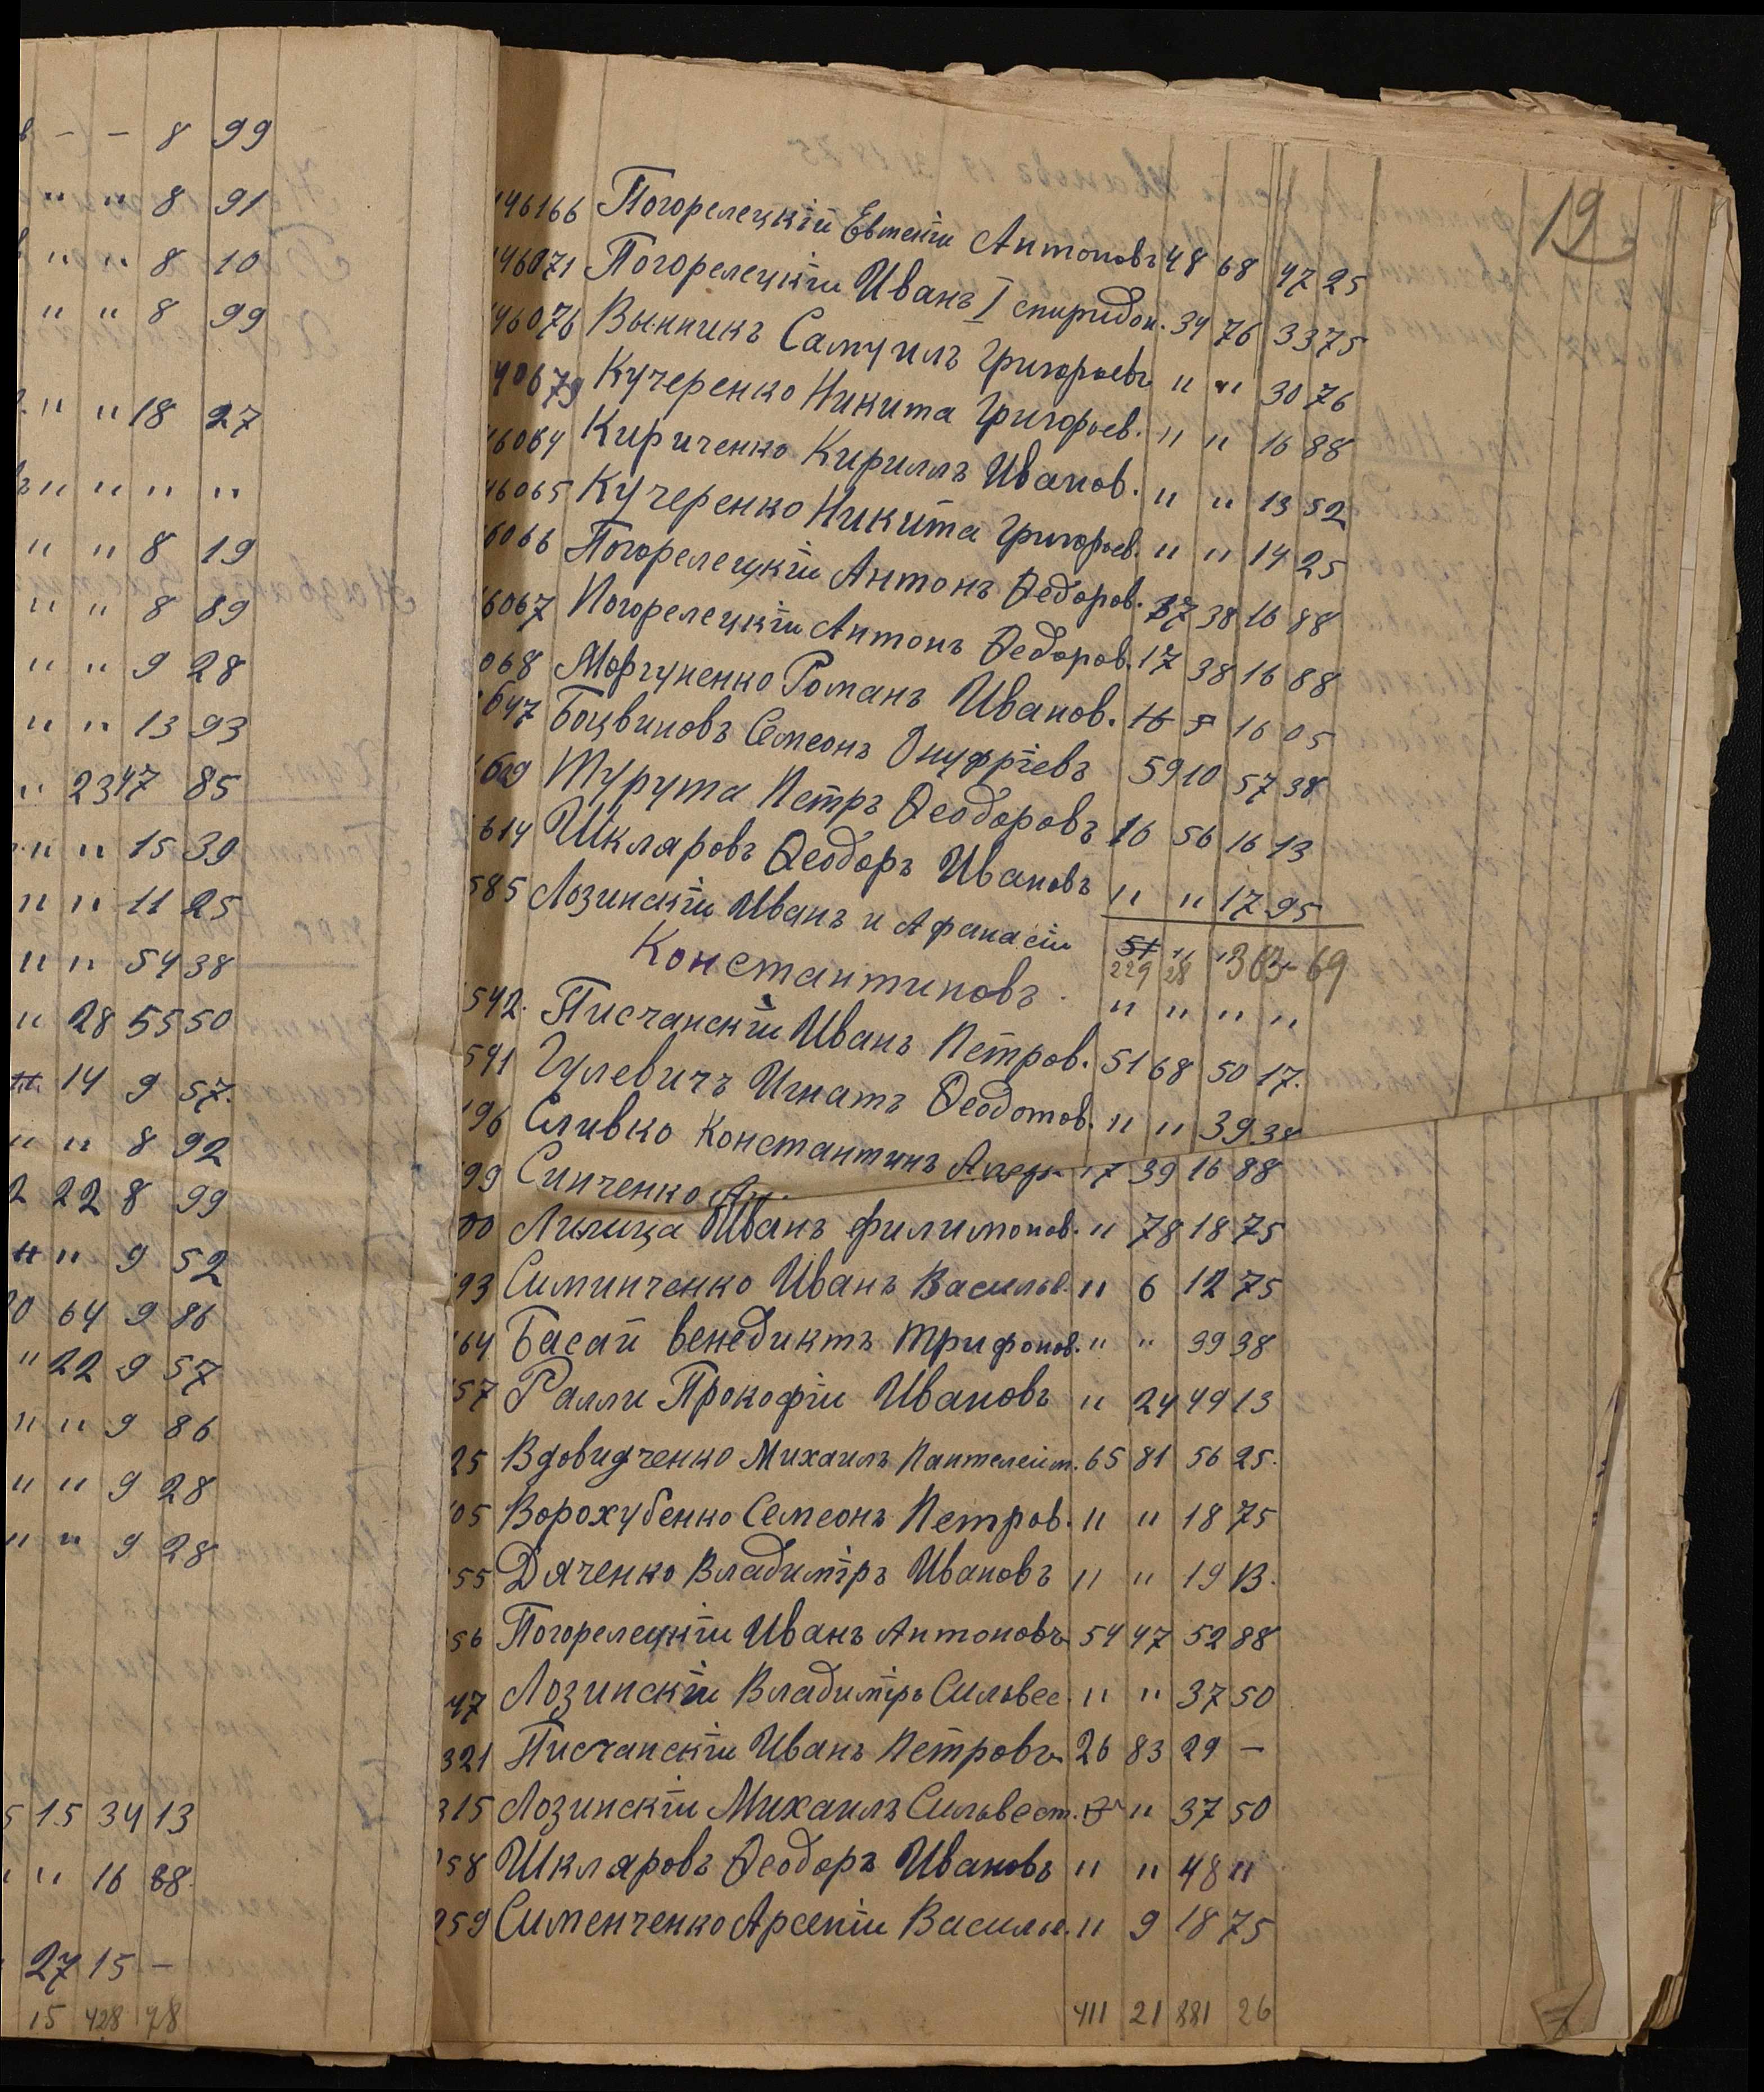 – – 8 99
" " 8 91
" " 8 10
" " 8 99
" " 18 27
" " " "
" " 8 19
" " 8 89
" " 9 28
" " 13 93
" 23 47 85
" " 15 39
" " 11 25
" " 54 38
" 28 55 50
14 9 57.
" " 8 92
2 22 8 99
" 9 52
0 64 9 86
" 22 9 57
" " 9 86
" " 9 28
" " 9 28
5 15 34 13
" " 16 88.
27 15 –
15 428 78
19
146166 Погорелецкій Евменій Антоновъ 48 68 47 25
46071 Погорелецкій Иванъ I спиридон. 34 76 33 75
46076 Вынникъ Самуилъ Григорьевъ " " 30 76
40679 Кучеренко Никита Григорьев. " " 16 88
46064 Кириченко Кириллъ Иванов. " " 13 52
46065 Кучеренко Никита Григорьев. " " 14 25
6066 Погорелецкій Антонъ Ѳедоров. 17 38 16 88
6067 Погорелецкій Антонъ Ѳедоров. 17 38 16 88
068 Моргуненко Романъ Иванов. 16 5 16 05
647 Боцвиновъ Семеонъ Онуфріевъ 59 10 57 38
609 Турута Петръ Ѳеодоровъ 16 56 16 13
614 Шкляровъ Ѳеодоръ Ивановъ " " 17 95
585 Лозинскій Иванъ и Афанасій
229 28 303-69
Константиновъ. " " " "
542. Писчанскій Иванъ Петров. 51 68 50 17.
591 Гулевичъ Игнатъ Ѳеодотов. " " 39 38
96 Сливко Константинъ 17 39 16 88
99 Синченко
00 Лилица Иванъ филимонов. " 78 18 75
93 Симинченко Иванъ Васильев. " 6 12 75
64 Басай венедиктъ Трифонов. " " 39 38
57 Ралли Прокофій Ивановъ " 24 49 13
25 Вдовидченко Михаилъ Пантелейм. 65 81 56 25.
05 Ворохубенко Семеонъ Петров. " " 18 75
55 Дяченко Владиміръ Ивановъ " " 19 13.
56 Погорелецкій Иванъ Антоновъ 54 47 52 88
47 Лозинскій Владиміръ Сильвес. " " 37 50
321 Писчанскій Иванъ Петровъ 26 83 29 –
315 Лозинскій Михаилъ Сильвест. " 37 50
58 Шкляровъ Ѳеодоръ Ивановъ " " 48 "
959 Сименченко Арсеній Васильев. " 9 18 75
411 21 881 26